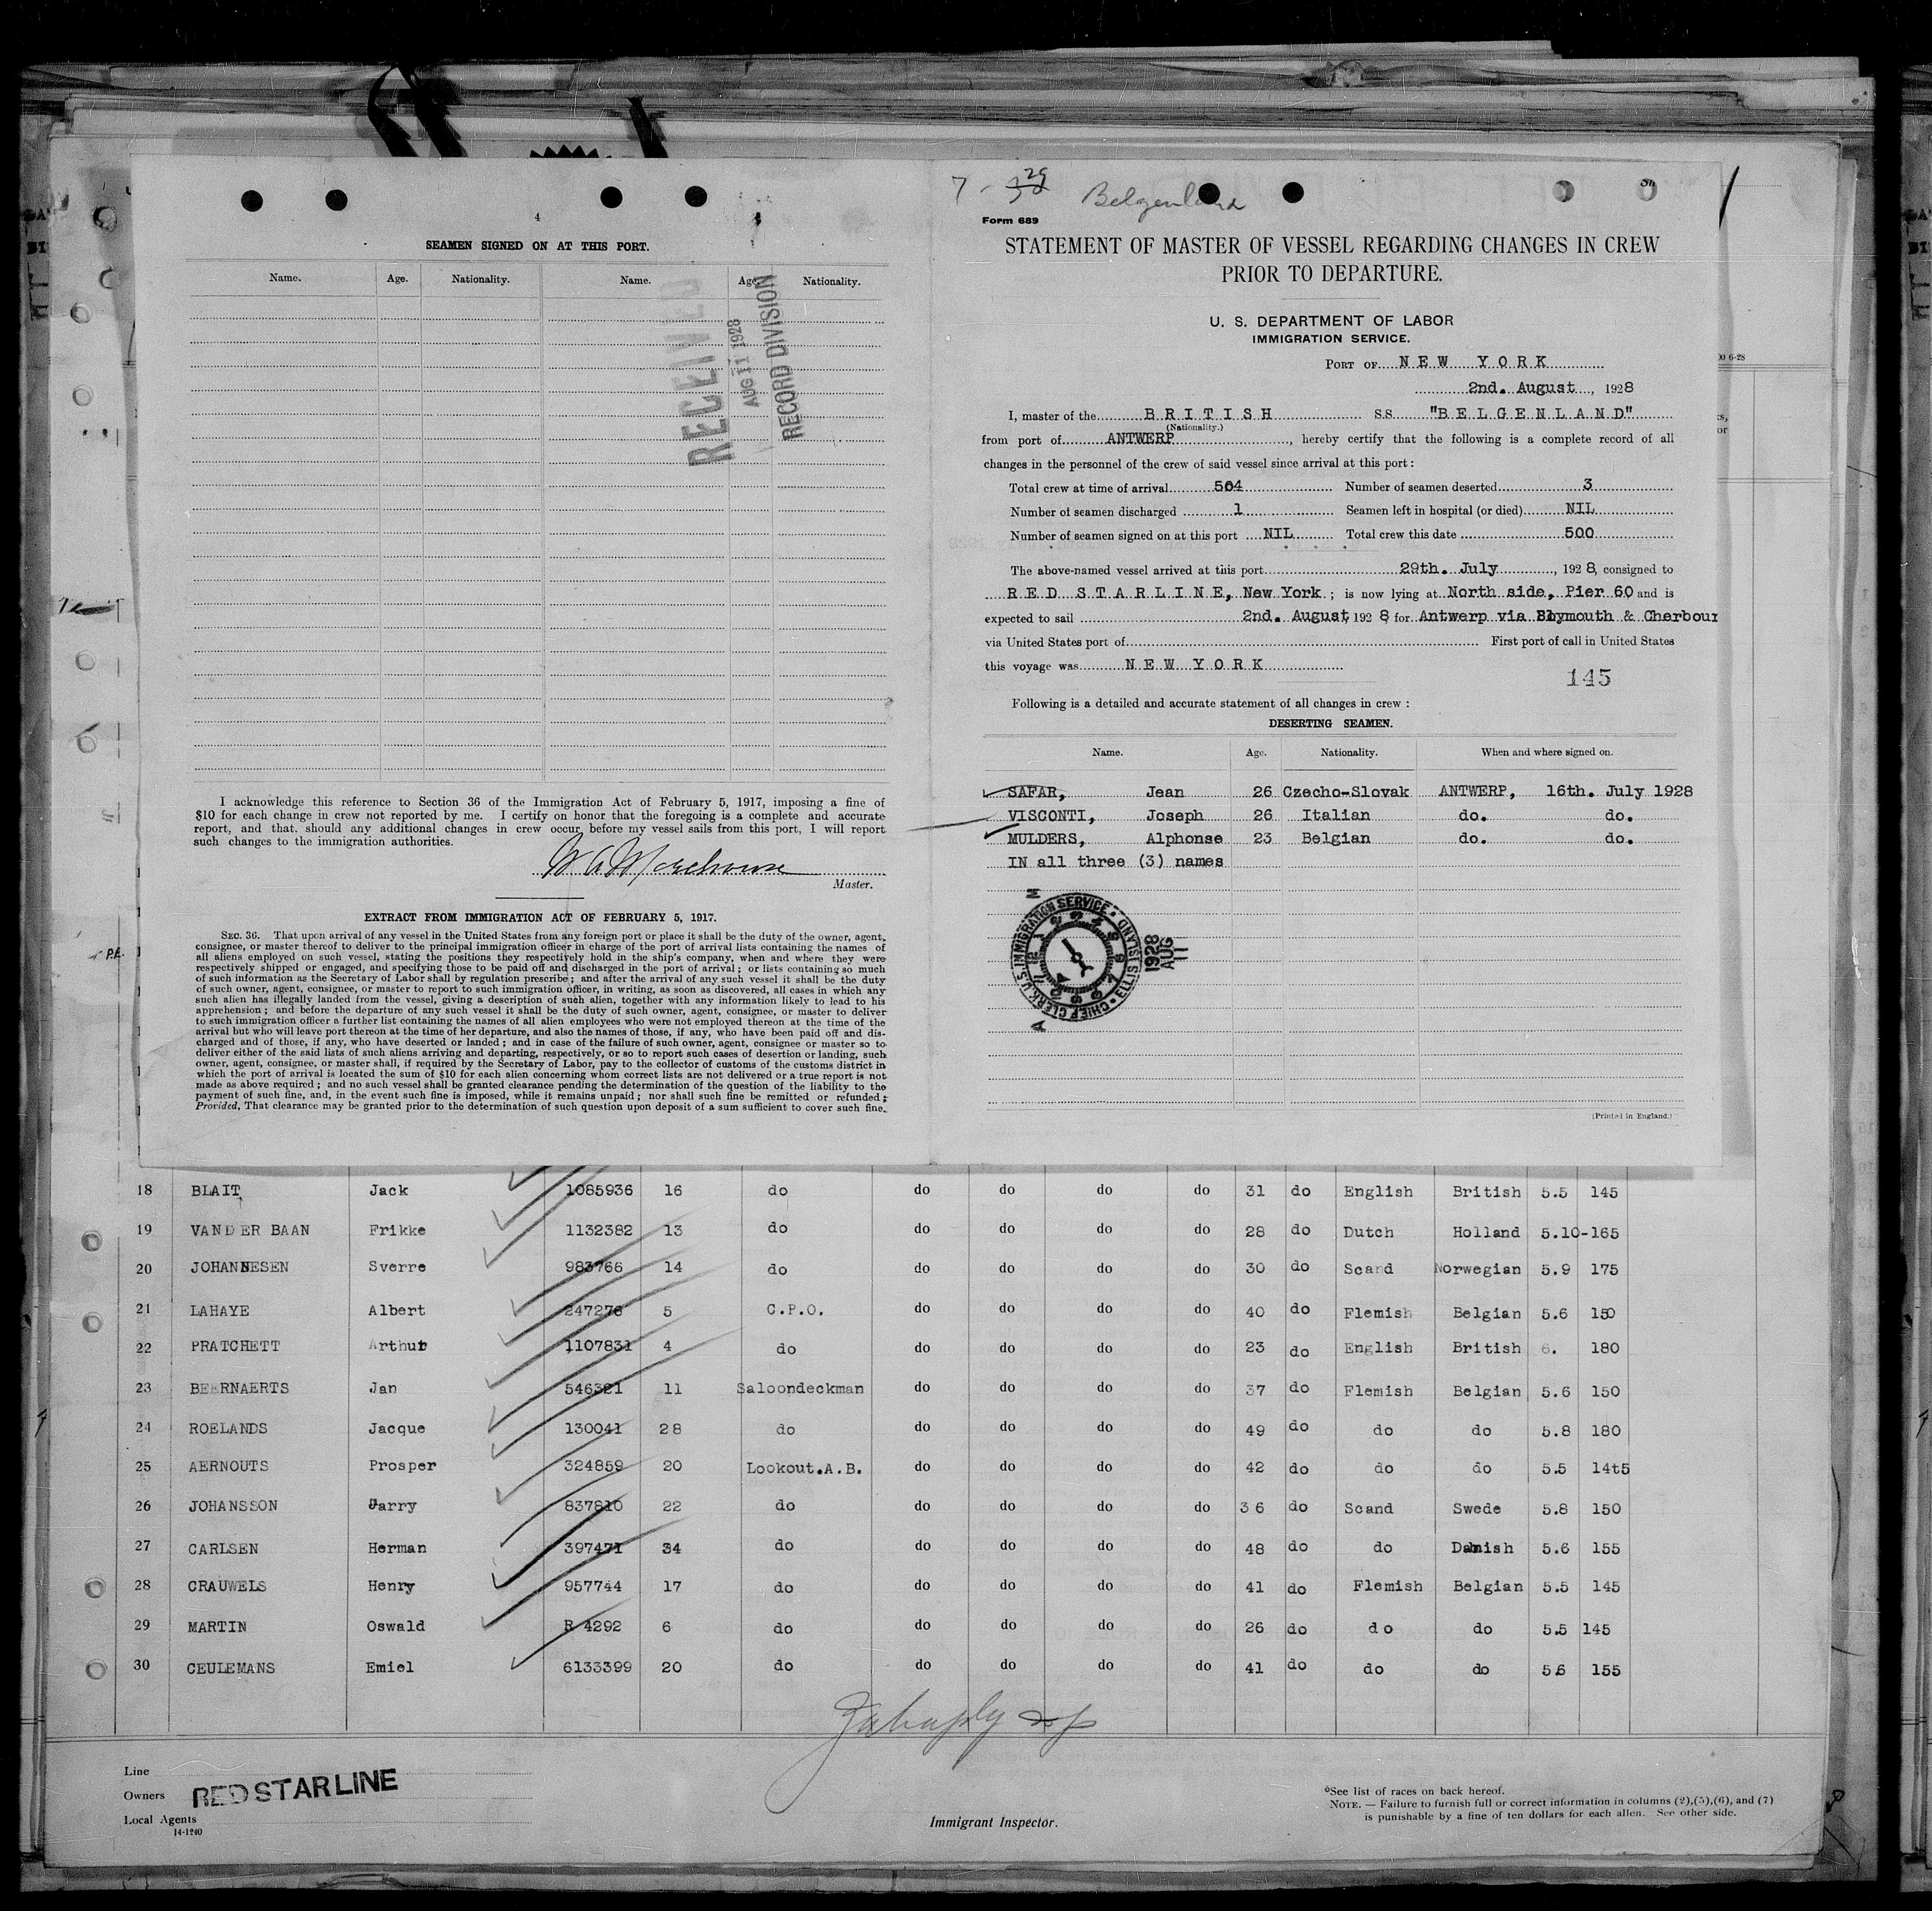 4
SEAMEN SIGNED ON AT THIS PORT.
Name. Age. Nationality. Name. Age. Nationality.
RECEIVED
AUG 11 1928
RECORD DIVISION
I acknowledge this reference to Section 36 of the Immigration Act of February 5, 1917, imposing a fine of
$10 for each change in crew not reported by me. I certify on honor that the foregoing is a complete and accurate
report, and that should any additional changes in crew occur before my vessel sails from this port, I will report
such changes to the immigration authorities.
W A Morehouse
Master.
EXTRACT FROM IMMIGRATION ACT OF FEBRUARY 5, 1917.
SEC. 36. That upon arrival of any vessel in the United States from any foreign port or place it shall be the duty of the owner, agent,
consignee, or master thereof to deliver to the principal immigration officer in charge of the port of arrival lists containing the names of
all aliens employed on such vessel, stating the positions they respectively hold in the ship's company, when and where they were
respectively shipped or engaged, and specifying those to be paid off and discharged in the port of arrival; or lists containing so much
of such information as the Secretary of Labor shall by regulation prescribe; and after the arrival of any such vessel it shall be the duty
of such owner, agent, consignee, or master to report to such immigration officer, in writing, as soon as discovered, all cases in which any
such alien has illegally landed from the vessel, giving a description of such alien, together with any information likely to lead to his
apprehension; and before the departure of any such vessel it shall be the duty of such owner, agent, consignee, or master to deliver
to such immigration officer a further list containing the names of all alien employees who were not employed thereon at the time of the
arrival but who will leave port thereon at the time of her departure, and also the names of those, if any, who have been paid off and dis-
charged and of those, if any, who have deserted or landed; and in case of the failure of such owner, agent, consignee or master so to
deliver either of the said lists of such aliens arriving and departing, respectively, or so to report such cases of desertion or landing, such
owner, agent, consignee, or master shall, if required by the Secretary of Labor, pay to the collector of customs of the customs district in
which the port of arrival is located the sum of $10 for each alien concerning whom correct lists are not delivered or a true report is not
made as above required; and no such vessel shall be granted clearance pending the determination of the question of the liability to the
payment of such fine, and, in the event such fine is imposed, while it remains unpaid; nor shall such fine be remitted or refunded;
Provided, That clearance may be granted prior to the determination of such question upon deposit of a sum sufficient to cover such fine.
7 - 29 Belgenland
Form 689
STATEMENT OF MASTER OF VESSEL REGARDING CHANGES IN CREW
PRIOR TO DEPARTURE.
U. S. DEPARTMENT OF LABOR
IMMIGRATION SERVICE.
PORT OF NEW YORK
2nd. August, 1928
I, master of the BRITISH S.S. "BELGENLAND"
(Nationality.)
from port of ANTWERP, hereby certify that the following is a complete record of all
changes in the personnel of the crew of said vessel since arrival at this port:
Total crew at time of arrival 504 Number of seamen deserted 3
Number of seamen discharged 1 Seamen left in hospital (or died) NIL
Number of seamen signed on at this port NIL Total crew this date 500
The above-named vessel arrived at this port 29th. July, 1928, consigned to
RED STARLINE, New York; is now lying at North side, Pier 60 and is
expected to sail 2nd. August, 1928 for Antwerp via Plymouth & Cherbour
via United States port of First port of call in United States
this voyage was NEW YORK
145
Following is a detailed and accurate statement of all changes in crew:
DESERTING SEAMEN.
Name. Age. Nationality. When and where signed on.
SAFAR, Jean 26 Czecho-Slovak ANTWERP, 16th. July 1928
VISCONTI, Joseph 26 Italian do. do.
MULDERS, Alphonse 23 Belgian do. do.
IN all three (3) names
CHIEF CLERK, U.S. IMMIGRATION SERVICE · ELLIS ISLAND
1928 AUG 11
(Printed in England.)
00 6-28
P.E.
18 BLAIT Jack 1085936 16 do do do do do 31 do English British 5.5 145
19 VAN DER BAAN Frikke 1132382 13 do do do do do 28 do Dutch Holland 5.10-165
20 JOHANNESEN Sverre 983766 14 do do do do do 30 do Scand Norwegian 5.9 175
21 LAHAYE Albert 247276 5 C.P.O. do do do do 40 do Flemish Belgian 5.6 150
22 PRATCHETT Arthur 1107831 4 do do do do do 23 do English British 6. 180
23 BEERNAERTS Jan 546321 11 Saloondeckman do do do do 37 do Flemish Belgian 5.6 150
24 ROELANDS Jacque 130041 28 do do do do do 49 do do do 5.8 180
25 AERNOUTS Prosper 324859 20 Lookout.A.B. do do do do 42 do do do 5.5 14t5
26 JOHANSSON Harry 837810 22 do do do do do 36 do Scand Swede 5.8 150
27 CARLSEN Herman 397471 34 do do do do do 48 do do Danish 5.6 155
28 CRAUWELS Henry 957744 17 do do do do do 41 do Flemish Belgian 5.5 145
29 MARTIN Oswald R 4292 6 do do do do do 26 do do do 5.5 145
30 CEULEMANS Emiel 6133399 20 do do do do do 41 do do do 5.6 155
Line
Owners RED STAR LINE
Local Agents
14-1240
Immigrant Inspector.
See list of races on back hereof.
NOTE. — Failure to furnish full or correct information in columns (2),(5),(6), and (7)
is punishable by a fine of ten dollars for each alien. See other side.